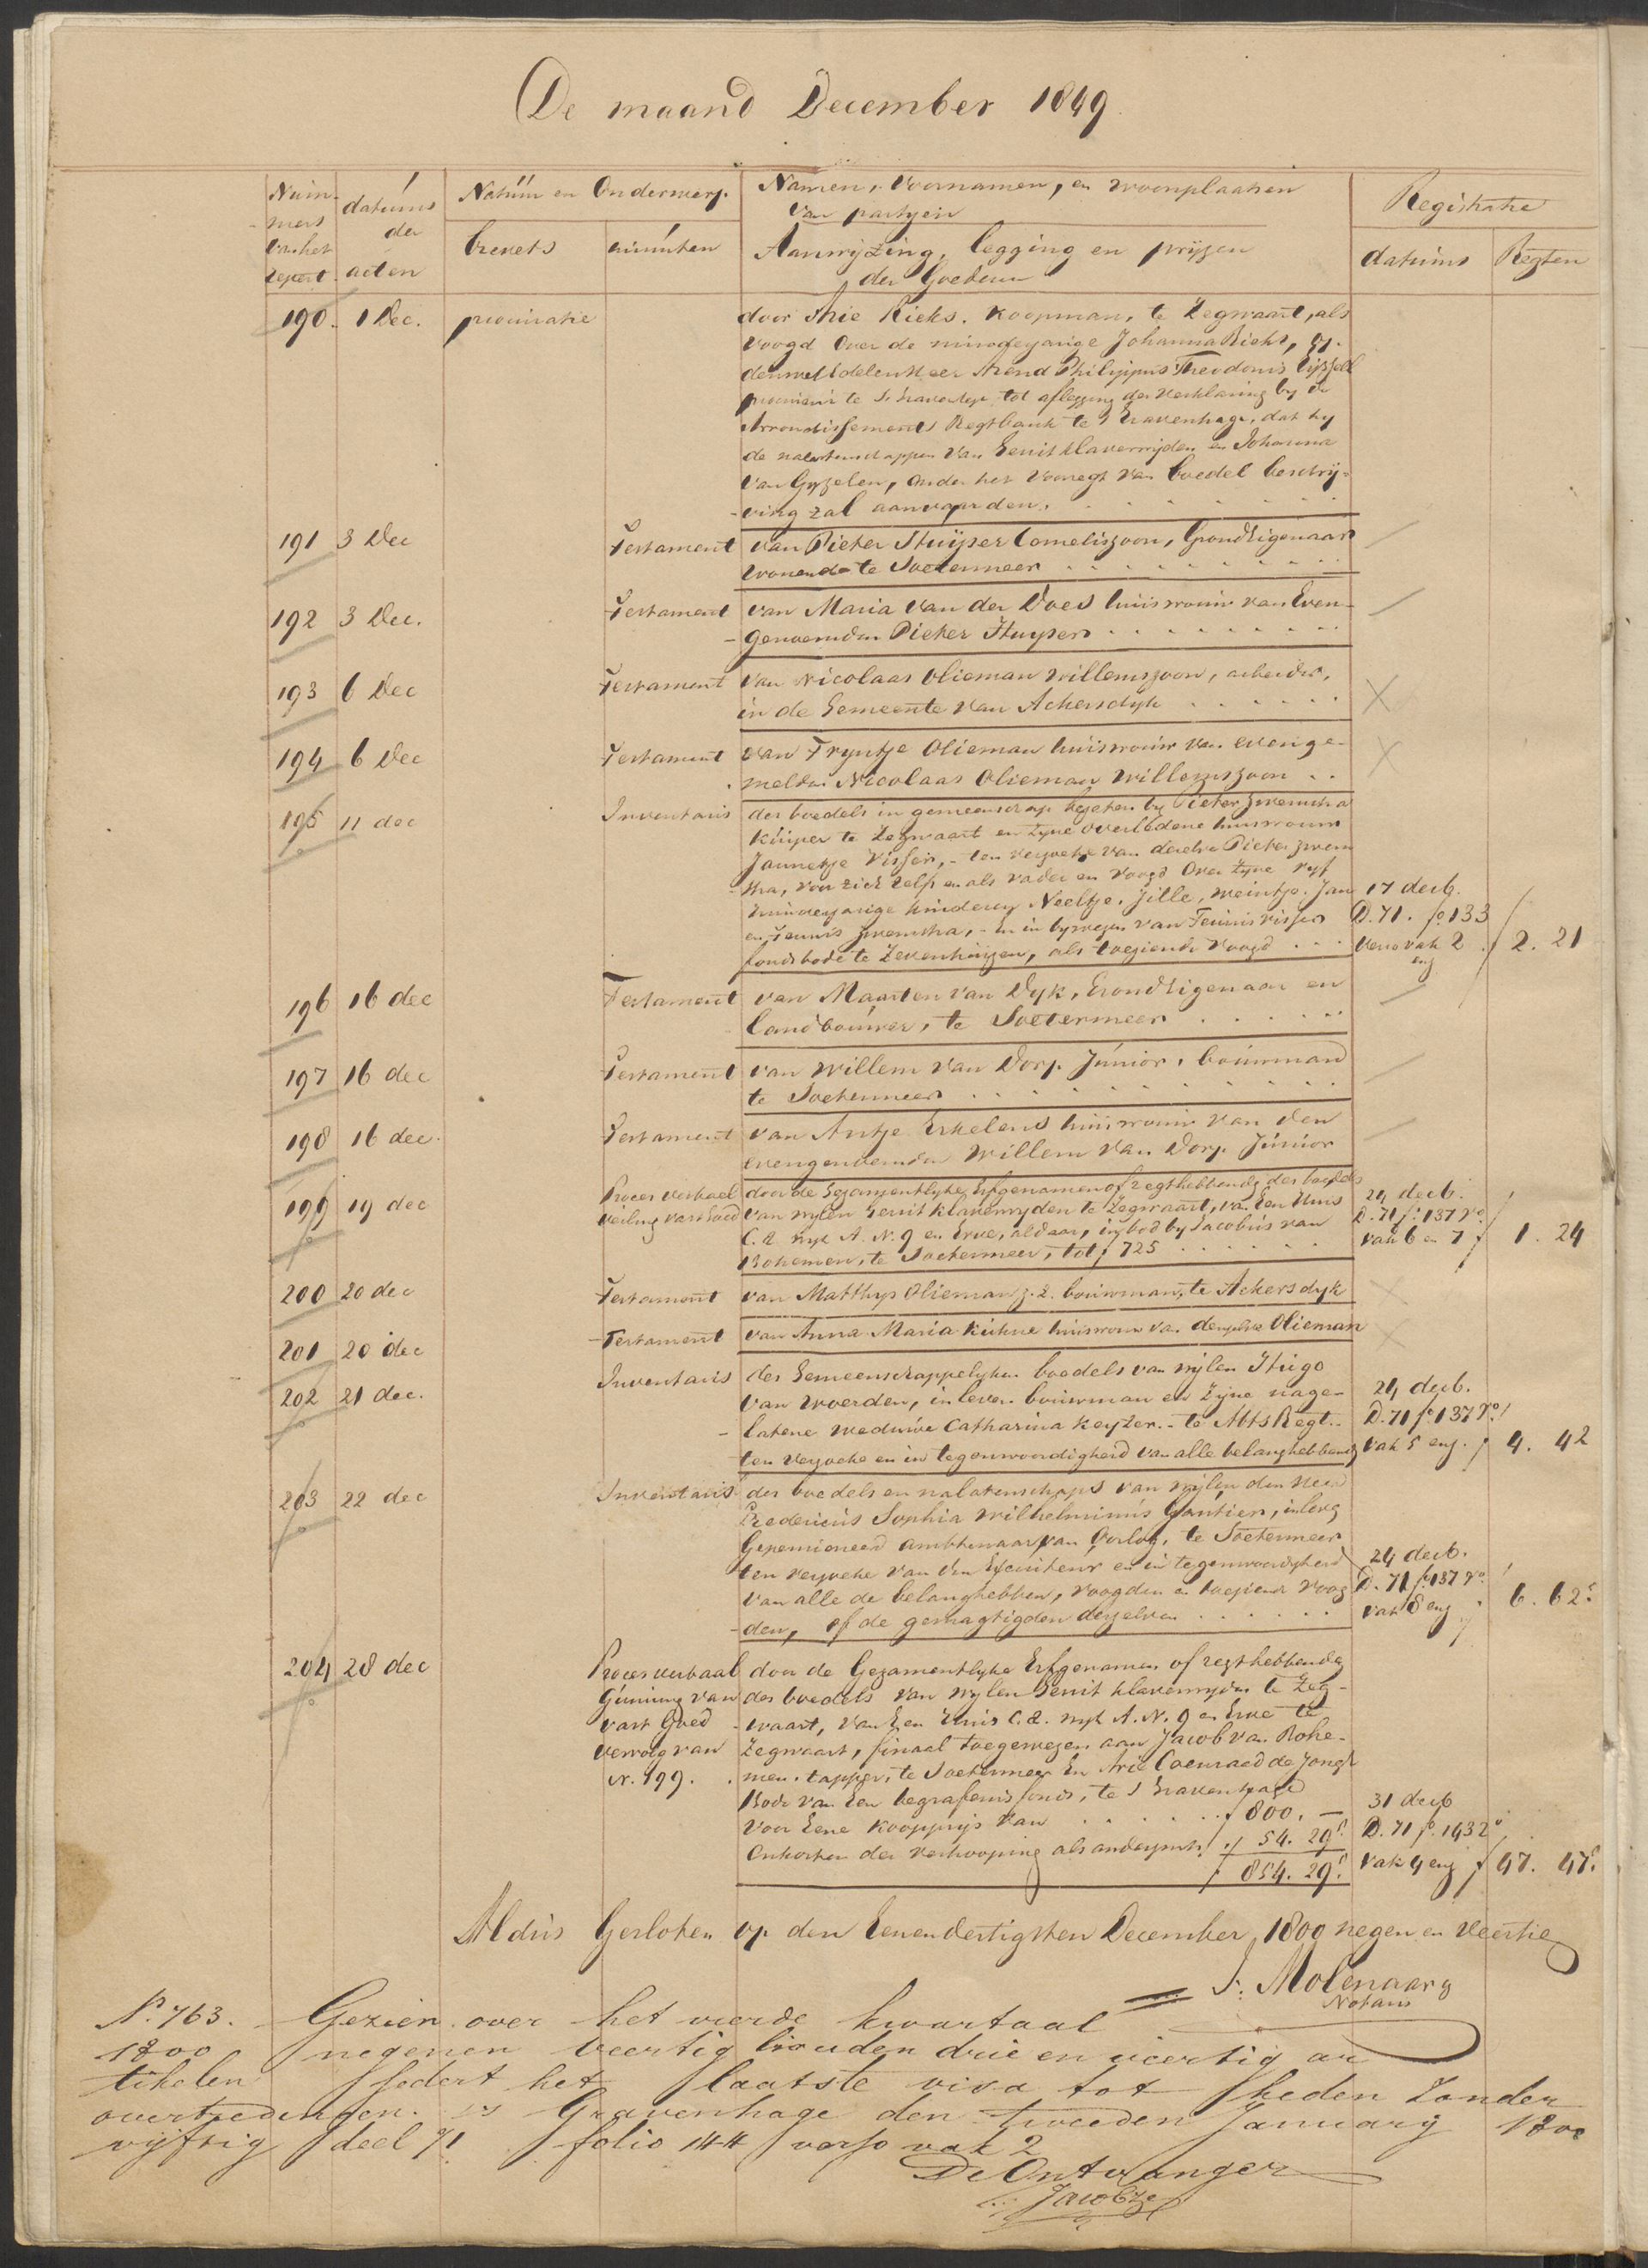 De maand December 1849.
Num-
mers
van het
repert.
datums
der
acten
Natuur en Onderwerp.
brevets
minuten
Namen, Voornamen, en woonplaatsen
van partyen
Aanwyzing, legging en pryzen
der Goederen
Registratie
datums
Regten
190. 1 Dec. procuratie door Arie Rieks. Koopman, te Zegwaart, als
Voogd Over de minderjarige Johanna Rieks, op
den weledelen Heer Arend Philippus Theodorus
procureur te 's Gravenhage, tot aflegging der verklaring by de
Arrondissements Regtbank te 's Gravenhage, dat hy
de nalatenschappen van Gerrit Klaverwyden en Johanna
van Gyzelen, onder het Voorregt van boedel beschry-
ving zal aanvaarden.
191 3 Dec Testament van Pieter Stuyser Corneliszoon, Grondeigenaar
wonende te Soetermeer
192 3 Dec. Testament van Maria van der Does huisvrouw van Even-
genoemden Pieter Stuyser
193 6 Dec Testament van Nicolaas Olieman Willemszoon, arbeider,
in de Gemeente van Ackersdyk
194 6 Dec Testament van Tryntje Olieman huisvrouw van evenge-
melden Nicolaas Olieman Willemszoon
195 11 dec Inventaris des boedels in gemeenschap bezeten by Pieter Zwemstra
Kuiper te Zegwaart en zyne overledene huisvrouw
Jannetje Visser, - ten verzoeke van denzelve Pieter Zwem
stra, voor zich zelf en als vader en Voogd Over zyne vyf
minderjarige kinderen Neeltje, Jille, Meintje, Jan 17 decb.
en Teunis Zwemstra, - en in bywezen van Teunis Visser D. 71. fo 133
fondsbode te Zevenhuizen, als toeziende Voogd verso vak 2 enz f 2. 21
196 16 dec Testament van Maarten van Dyk, Grondeigenaar en
landbouwer, te Soetermeer
197 16 dec Testament van Willem van Dorp Junior, bouwman
te Soetermeer
198 16 dec. Testament van Antje Erkelens huisvrouw van den
evengenoemden Willem van Dorp Junior
199 19 dec Proces verbaal door de Gezamentlyke Erfgenamen of regthebbende des boedels 24 decb.
veiling vast Goed van wylen Gerrit Klaverwyden te Zegwaart, van Een Huis D. 71 fo 137 vo
C. A. wyk A. N. 9 en Erve, aldaar, in bod by Jacobus van vak 6 en 7 f 1. 24
Bohemen, te Soetermeer, tot f 725
200 20 dec Testament van Matthys Olieman J. Z. bouwman, te Ackersdyk
201 20 dec Testament van Anna Maria Kuhne huisvrouw van denzelve Olieman
202 21 dec. Inventaris des Gemeenschappelyken boedels van wylen Hugo
van Woerden, in leven bouwman en zyne nage- 24 decb.
latene weduwe Catharina Keyzer. - te Abts Regt. - D. 71 fo 137 vo
ten verzoeke en in tegenwoordigheid van alle belanghebbende vak 5 enz. f 4. 42
203 22 dec Inventaris des boedels en nalatenschaps van wylen den Heer
Fredericus Sophia Wilhelminus Gautier, in leven
Gepensioneerd Ambtenaar van Oorlog, te Soetermeer
ten verzoeke van den Executeur en in tegenwoordigheid 24 decb.
van alle de belanghebben, voogden en toeziende Voog D. 71 fo 137 vo
den, of de gemagtigden derzelven vak 8 enz f 6. 62⁵
204 28 dec Proces verbaal door de Gezamentlyke Erfgenamen of regthebbende
Gunning van des boedels van wylen Gerrit Klaverwyden te Zeg-
vast Goed waart, van Een Huis C. A. wyk A. N. 9 en Erve te
vervolg van Zegwaart, finaal toegewezen aan Jacob van Bohe-
N. 199. men. tapper, te Soetermeer En Arie Coenraad de Jongh
Bode van Een begrafenis fonds, te 's Gravenhage 31 decb
Voor Eene Koopprys van f 800. — D. 71 fo. 143
Onkosten der verkooping als anderzints f 54. 29⁵ vak 4 enz f 47. 47⁵
f 854. 29⁵
Aldus Gesloten op den Eenendertigsten December 1800 negen en Veertig
J. Molenaar
Notaris
No. 763. Gezien over het vierde kwartaal
1800 negen en veertig houden drie en veertig ar
tikelen sedert het laatste visa tot heden zonder
overtredingen. 's Gravenhage den tweeden January 1800
vyftig deel 71 folio 144 verso vak 2
De Ontvanger